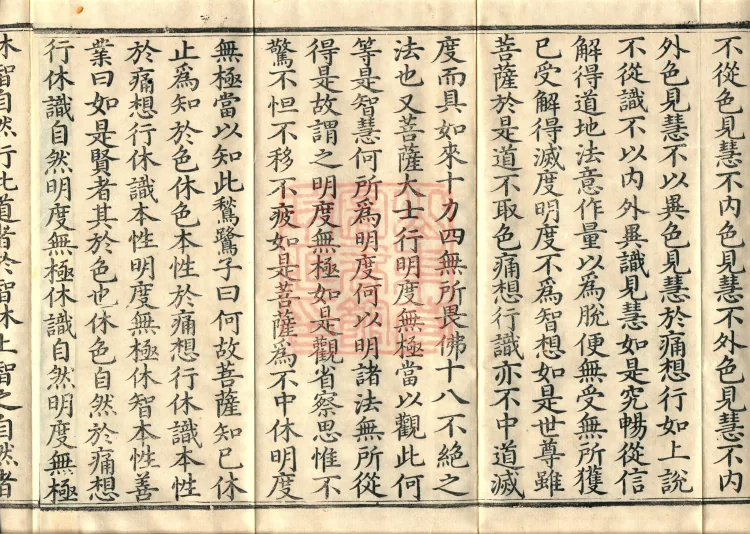 不從色見慧不內色見慧不外色見慧不內
外色見慧不以異色見慧於痛想行如上說
不從識不以內外異識見慧如是究暢從信
解得道地法意作量以為脫便無受無所獲
已受解得滅度明度不為智想如是世尊雖
菩薩於是道不取色痛想行識亦不中道滅
度而具如來十力四無所畏佛十八不絕之
法也又菩薩大士行明度無極當以觀此何
等是智慧何所為明度何以明諸法無所從
得是故謂之明度無極如是觀省察思惟不
驚不怛不移不疲如是菩薩為不中休明度
無極當以知此鶖鷺子曰何故菩薩知已休
止為知於色休色本性於痛想行休識本性
於痛想行休識本性明度無極休智本性善
業曰如是賢者其於色也休色自然於痛想
行休識自然明度無極休識自然明度無極
休智自然行此道者於智休上智之自然者